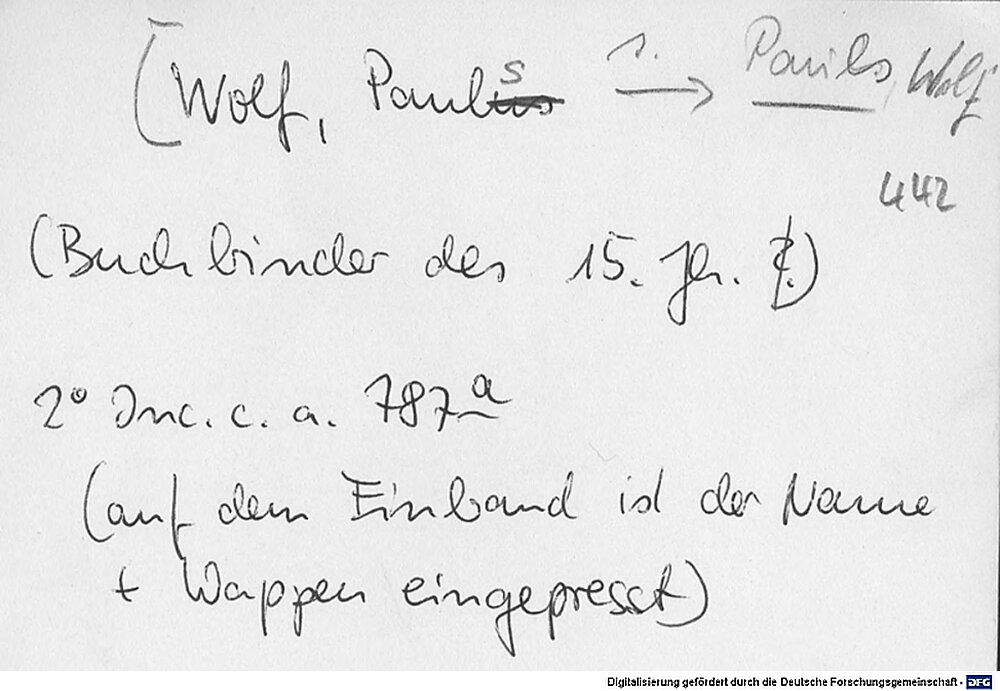 [Wolf, Pauls s. → Pauls, Wolf
442
(Buchbinder des 15. Jh.)
2° Inc. c. a. 787a
(auf dem Einband ist der Name
+ Wappen eingepresst)
Digitalisierung gefördert durch die Deutsche Forschungsgemeinschaft - DFG